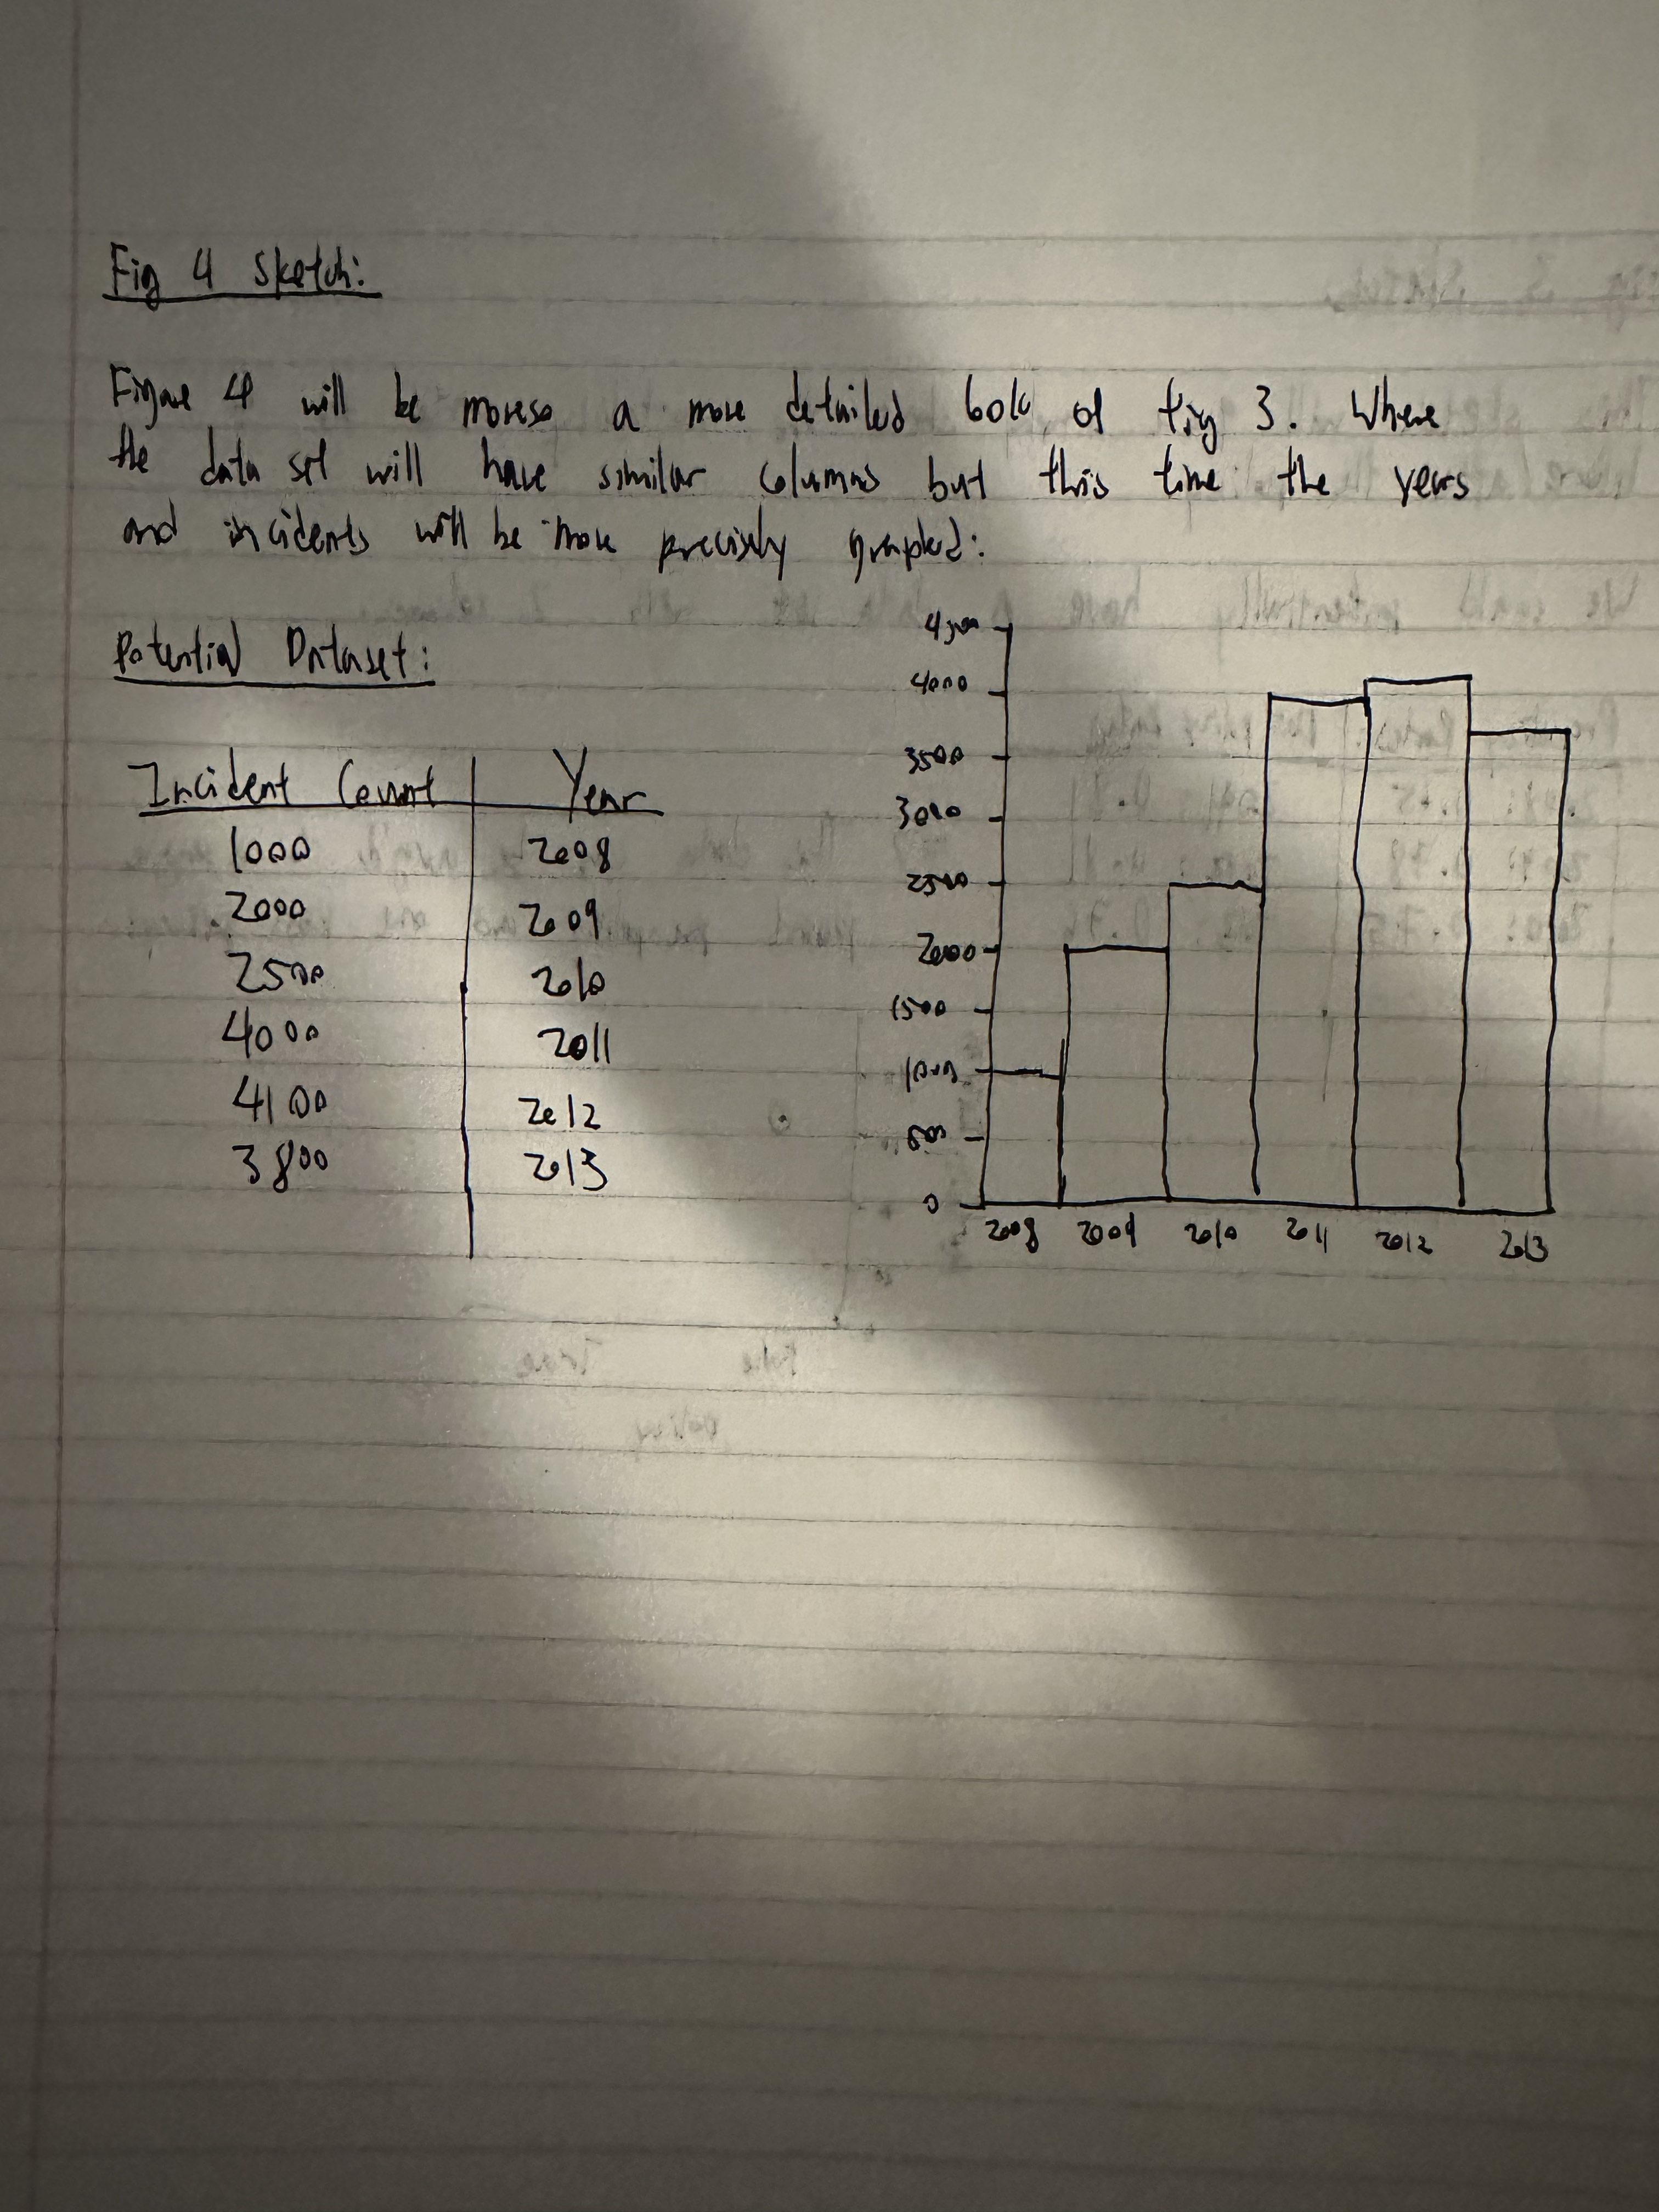 Fig 4 Sketch:
Figure 4 will be moreso a more detailed look of fig 3. Where
the data set will have similar columns but this time the years
and incidents will be more precisely graphed:
Potential Dataset:
Incident Count Year
1000 2008
2000 2009
2500 2010
4000 2011
4100 2012
3800 2013
4500
4000
3500
3000
2500
2000
1500
1000
500
0
2008 2009 2010 2011 2012 2013